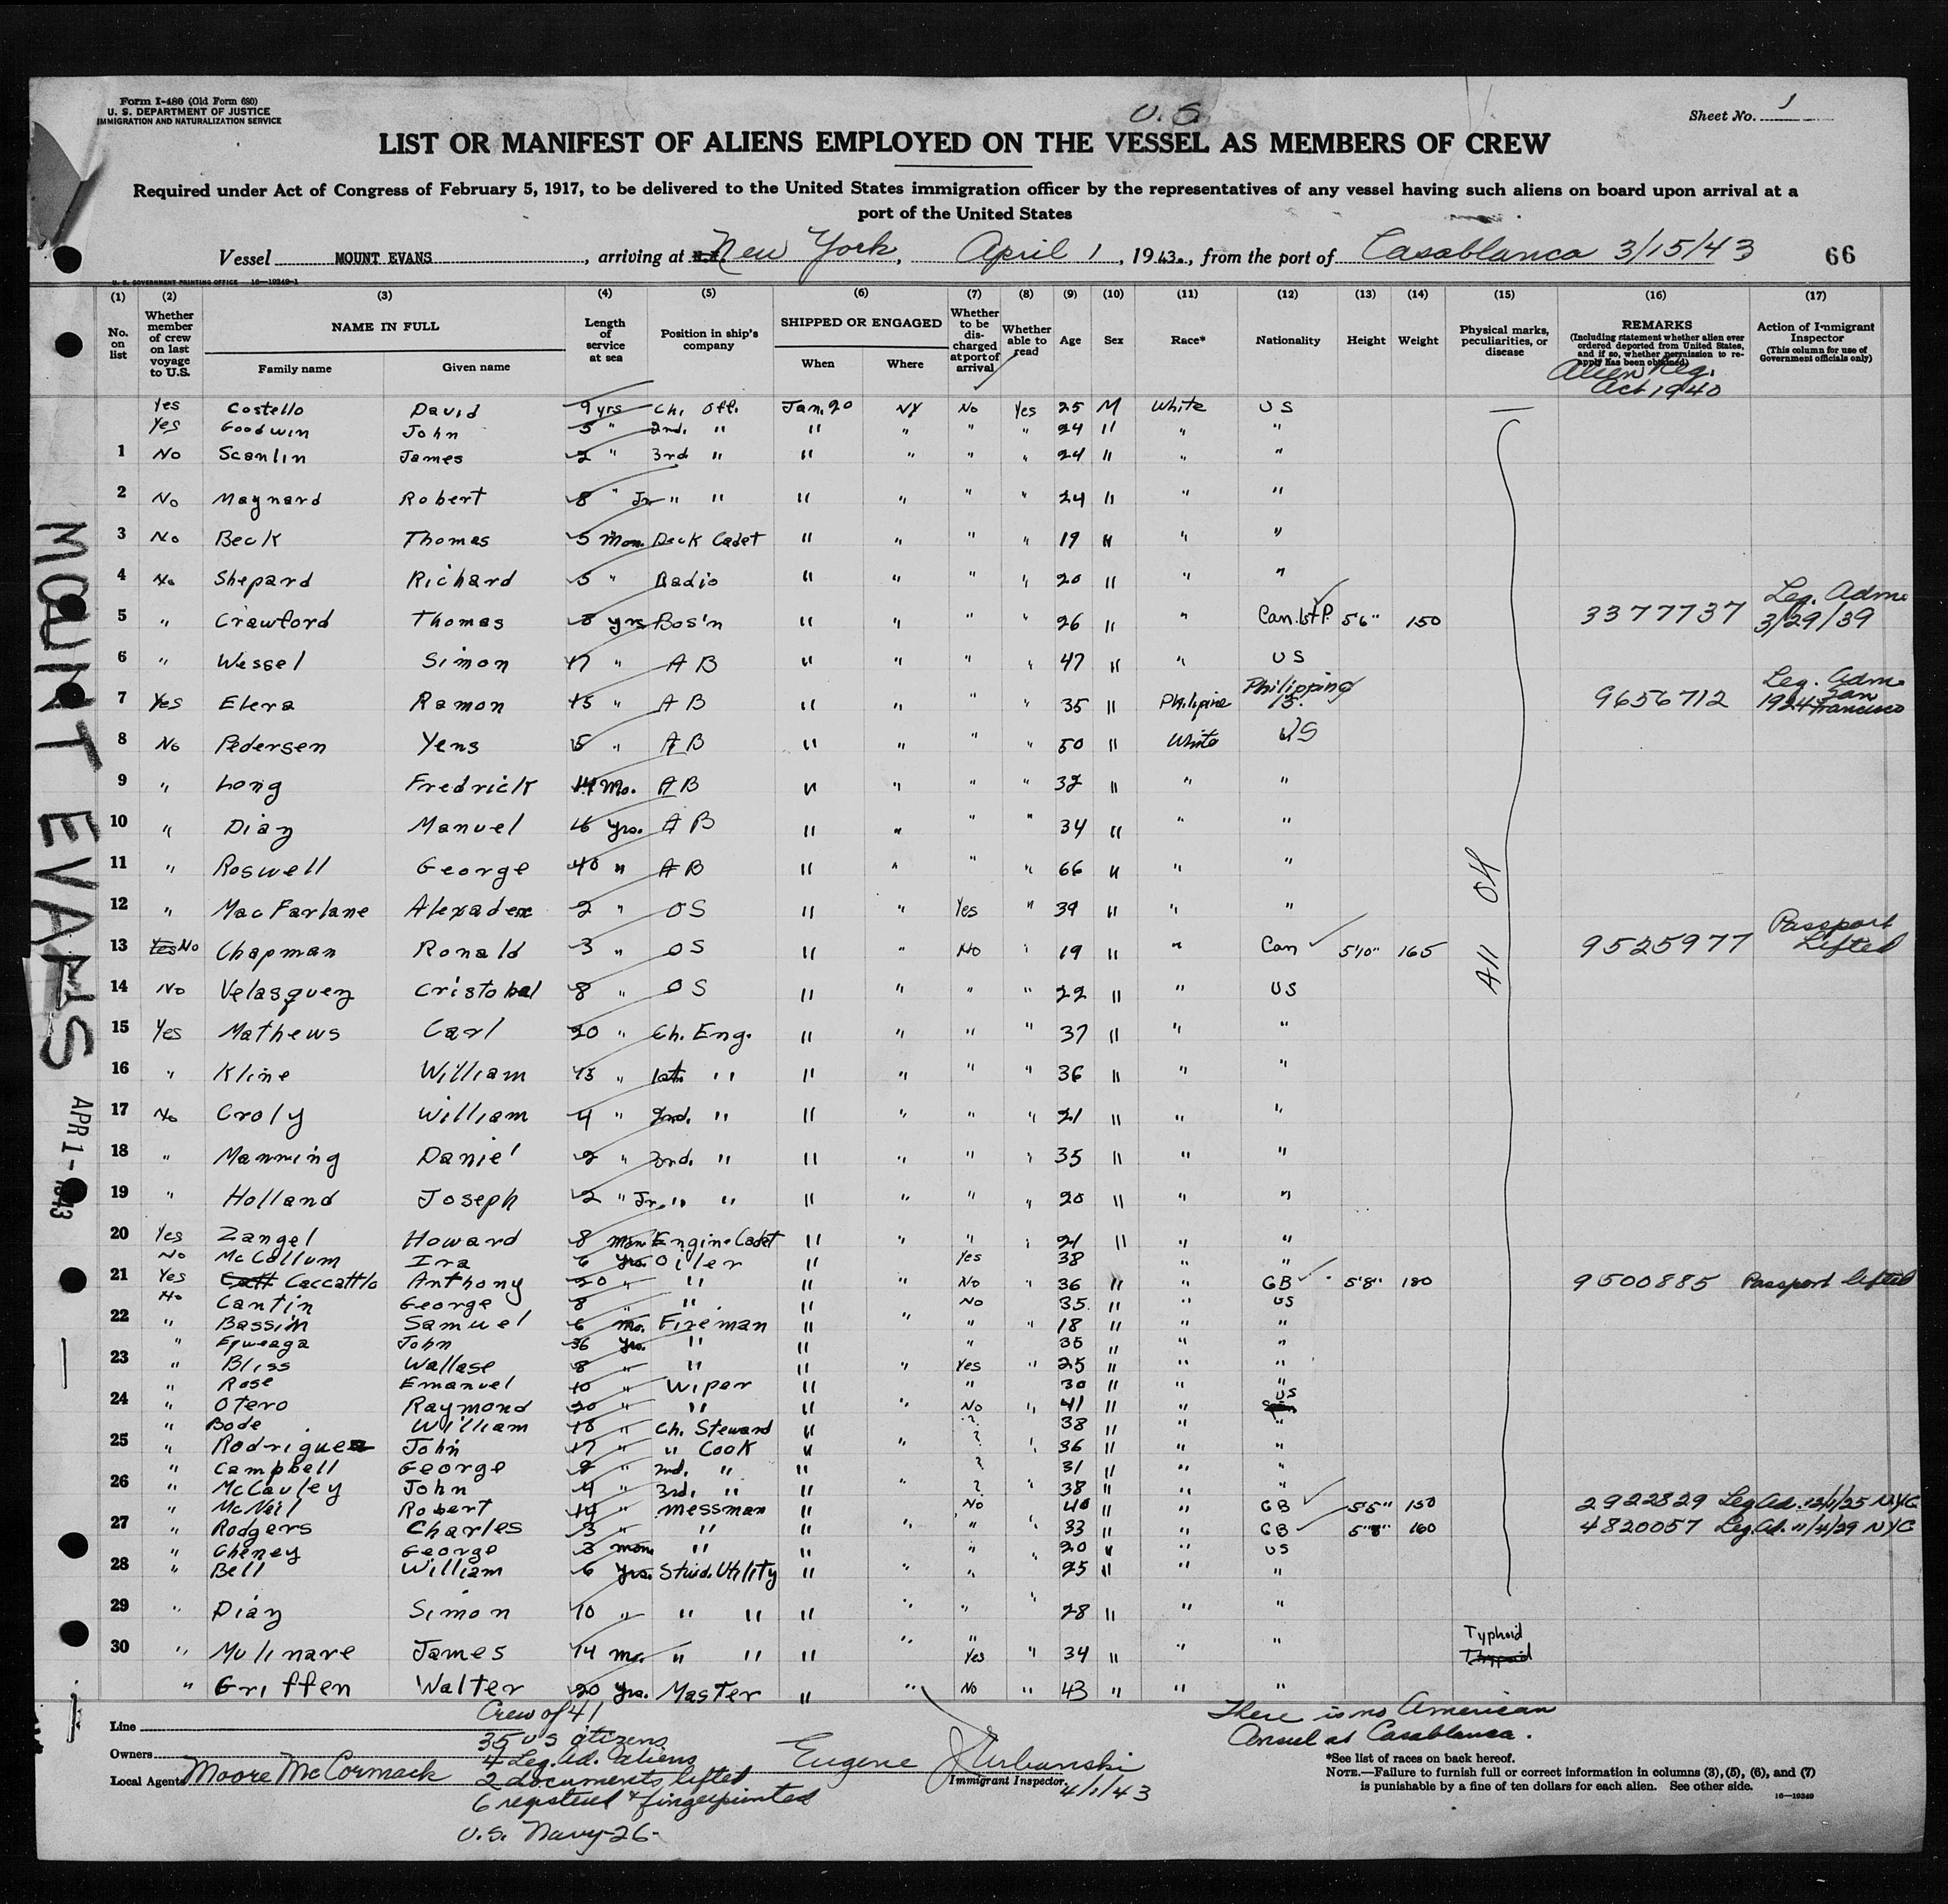 Form I-480 (Old Form 680)
U. S. DEPARTMENT OF JUSTICE
IMMIGRATION AND NATURALIZATION SERVICE
U. S.
Sheet No. 1
LIST OR MANIFEST OF ALIENS EMPLOYED ON THE VESSEL AS MEMBERS OF CREW
Required under Act of Congress of February 5, 1917, to be delivered to the United States immigration officer by the representatives of any vessel having such aliens on board upon arrival at a
port of the United States
Vessel MOUNT EVANS, arriving at New York, April 1, 1943., from the port of Casablanca 3/15/43 66
U. S. GOVERNMENT PRINTING OFFICE 16—19349-1
(1) (2) (3) (4) (5) (6) (7) (8) (9) (10) (11) (12) (13) (14) (15) (16) (17)
No. on list
Whether member of crew on last voyage to U.S.
NAME IN FULL
Family name Given name
Length of service at sea
Position in ship's company
SHIPPED OR ENGAGED
When Where
Whether to be discharged at port of arrival
Whether able to read
Age Sex Race* Nationality Height Weight
Physical marks, peculiarities, or disease
REMARKS
(Including statement whether alien ever ordered deported from United States, and if so, whether permission to reapply has been obtained)
Alien Reg. Act 1940
Action of Immigrant Inspector
(This column for use of Government officials only)
Yes Costello David 9 yrs Ch. Off. Jan. 20 NY No Yes 25 M White US —
Yes Goodwin John 5 " 2nd. " " " " " 24 " " "
1 No Scanlin James 2 " 3rd " " " " " 24 " " "
2 No Maynard Robert 8 " Jr " " " " " " 24 " " "
3 No Beck Thomas 5 Mon. Deck Cadet " " " " 19 " " "
4 No Shepard Richard 5 " Radio " " " " 20 " " "
5 " Crawford Thomas 8 yrs Bos'n " " " " 26 " " Can. 5'6" 150 3377737 Leg. Adm. 3/29/39
6 " Wessel Simon 17 " AB " " " " 47 " " US
7 Yes Elera Ramon 15 " AB " " " " 35 " Philipine Philippine 9656712 Leg. Adm. San Francisco 1924
8 No Pedersen Yens 15 " AB " " " " 50 " White US
9 " Long Fredrick 14 Mo. AB " " " " 32 " " "
10 " Diaz Manuel 16 yrs. AB " " " " 34 " " "
11 " Roswell George 40 " AB " " " " 66 " " "
12 " MacFarlane 2 " OS " " Yes " 39 " " "
13 Yes No Chapman Ronald 3 " OS " " No " 19 " " Can 5'10" 165 9525977 Passport Lifted
14 No Velasquez Cristobal 8 " OS " " " " 22 " " US
15 Yes Mathews Carl 20 " Ch. Eng. " " " " 37 " " "
16 " Kline William 15 " 1st " " " " " 36 " " "
17 No Croly William 4 " 2nd. " " " " " 21 " " "
18 " Manning Daniel 2 " 3rd. " " " " " 35 " " "
19 " Holland Joseph 2 " Jr. " " " " " " 20 " " "
20 Yes Zangel Howard 8 mon Engine Cadet " " " " 21 " " "
No McCollum Ira 6 yrs. Oiler Yes 38 " "
21 Yes Caccattlo Anthony 20 " " " No 36 " " GB 5'8" 180 9500885 Passport lifted
No Cantin George 8 " " " No 35 " " US
22 " Bassin Samuel 6 mo. Fireman " " " " 18 " " "
" John 36 yrs. " " " 35 " " "
23 " Bliss Wallase 8 " " " " Yes " 25 " " "
" Rose Emanuel 10 " Wiper " " 30 " " "
24 " Otero Raymond 20 " " " " No " 41 " " US
" Bode William 18 " Ch. Steward " ? 38 " " "
25 " Rodriguez John 17 " " Cook " " ? " 36 " " "
" Campbell George 8 " 2nd. " " ? 31 " " "
26 " McCauley John 4 " 3rd. " " " ? " 38 " " "
" McNeil Robert 14 " Messman " No 40 " " GB 5'5" 150 2922829 Leg. Ad. NYC
27 " Rodgers Charles 3 " " " " " " 33 " " GB 5'8" 160 4820057 Leg. Ad. 11/4/29 NYC
" Cheney George 3 mon " " " 20 " " US
28 " Bell William 6 yrs. Stwd. Utility " " " " 25 " " "
29 " Diaz Simon 10 " " " " " " 28 " " "
30 " Mulinare James 14 mo. " " " " Yes " 34 " " " Typhoid
" Griffen Walter 20 yrs. Master " " No " 43 " " "
All OK
MOUNT EVANS APR 1 - 1943
Line
Owners
Local Agents Moore McCormack
Crew of 41
35 US citizens
4 Leg. Ad. aliens
2 documents lifted
6 registered & fingerprinted
U.S. Navy-26-
Eugene J Urbanski
Immigrant Inspector.
4/1/43
There is no American
Consul at Casablanca.
*See list of races on back hereof.
NOTE.—Failure to furnish full or correct information in columns (3), (5), (6), and (7)
is punishable by a fine of ten dollars for each alien. See other side.
16—19349